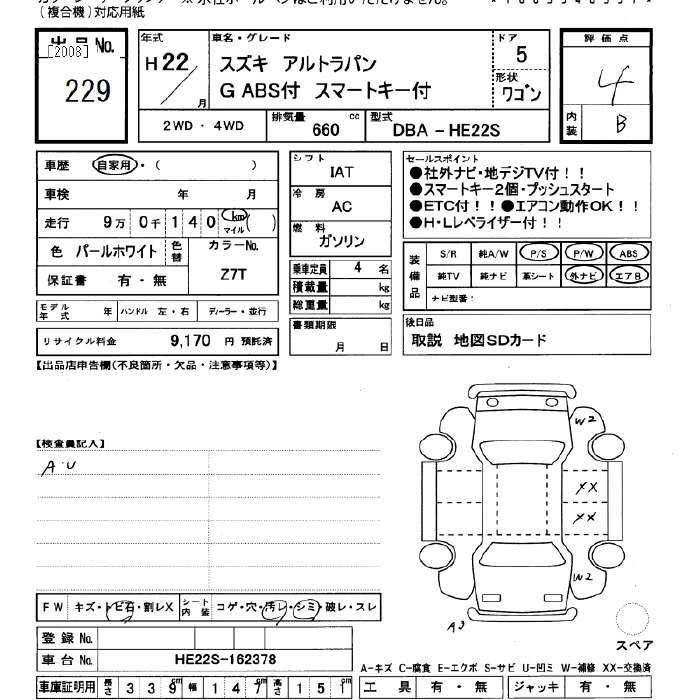 (複合機)対応用紙
出品No.
[2008]
229
年式
H22
月
車名・グレード
スズキ アルトラパン
G ABS付 スマートキー付
ドア
5
形状
ワゴン
評価点
4
内装
B
2WD・4WD
排気量
660
cc
型式
DBA-HE22S
車歴
自家用・( )
車検
年 月
走行
9万0千140
km
マイル
( )
色
パールホワイト
色替
カラーNo.
Z7T
保証書
有・無
モデル年式
年
ハンドル 左・右
ディーラー・並行
リサイクル料金
9,170 円 預託済
シフト
IAT
冷房
AC
燃料
ガソリン
乗車定員
4 名
積載量
kg
総重量
kg
書類期限
月 日
セールスポイント
●社外ナビ・地デジTV付!!
●スマートキー2個・プッシュスタート
●ETC付!!●エアコン動作OK!!
●H・Lレベライザー付!!
装備品
S/R 純A/W P/S P/W ABS
純TV 純ナビ 革シート 外ナビ エアB
ナビ型番:
後日品
取説 地図SDカード
【出品店申告欄(不良箇所・欠品・注意事項等)】
【検査員記入】
A・U
W2
XX
XX
W2
A3
スペア
FW
キズ・トビ石・割レX
シート内装
コゲ・穴・汚レ・シミ・破レ・スレ
登録No.
車台No.
HE22S-162378
車庫証明用
長さ 339cm
幅 147cm
高さ 151cm
A-キズ C-腐食 E-エクボ S-サビ U-凹ミ W-補修 XX-交換済
工具 有・無
ジャッキ 有・無